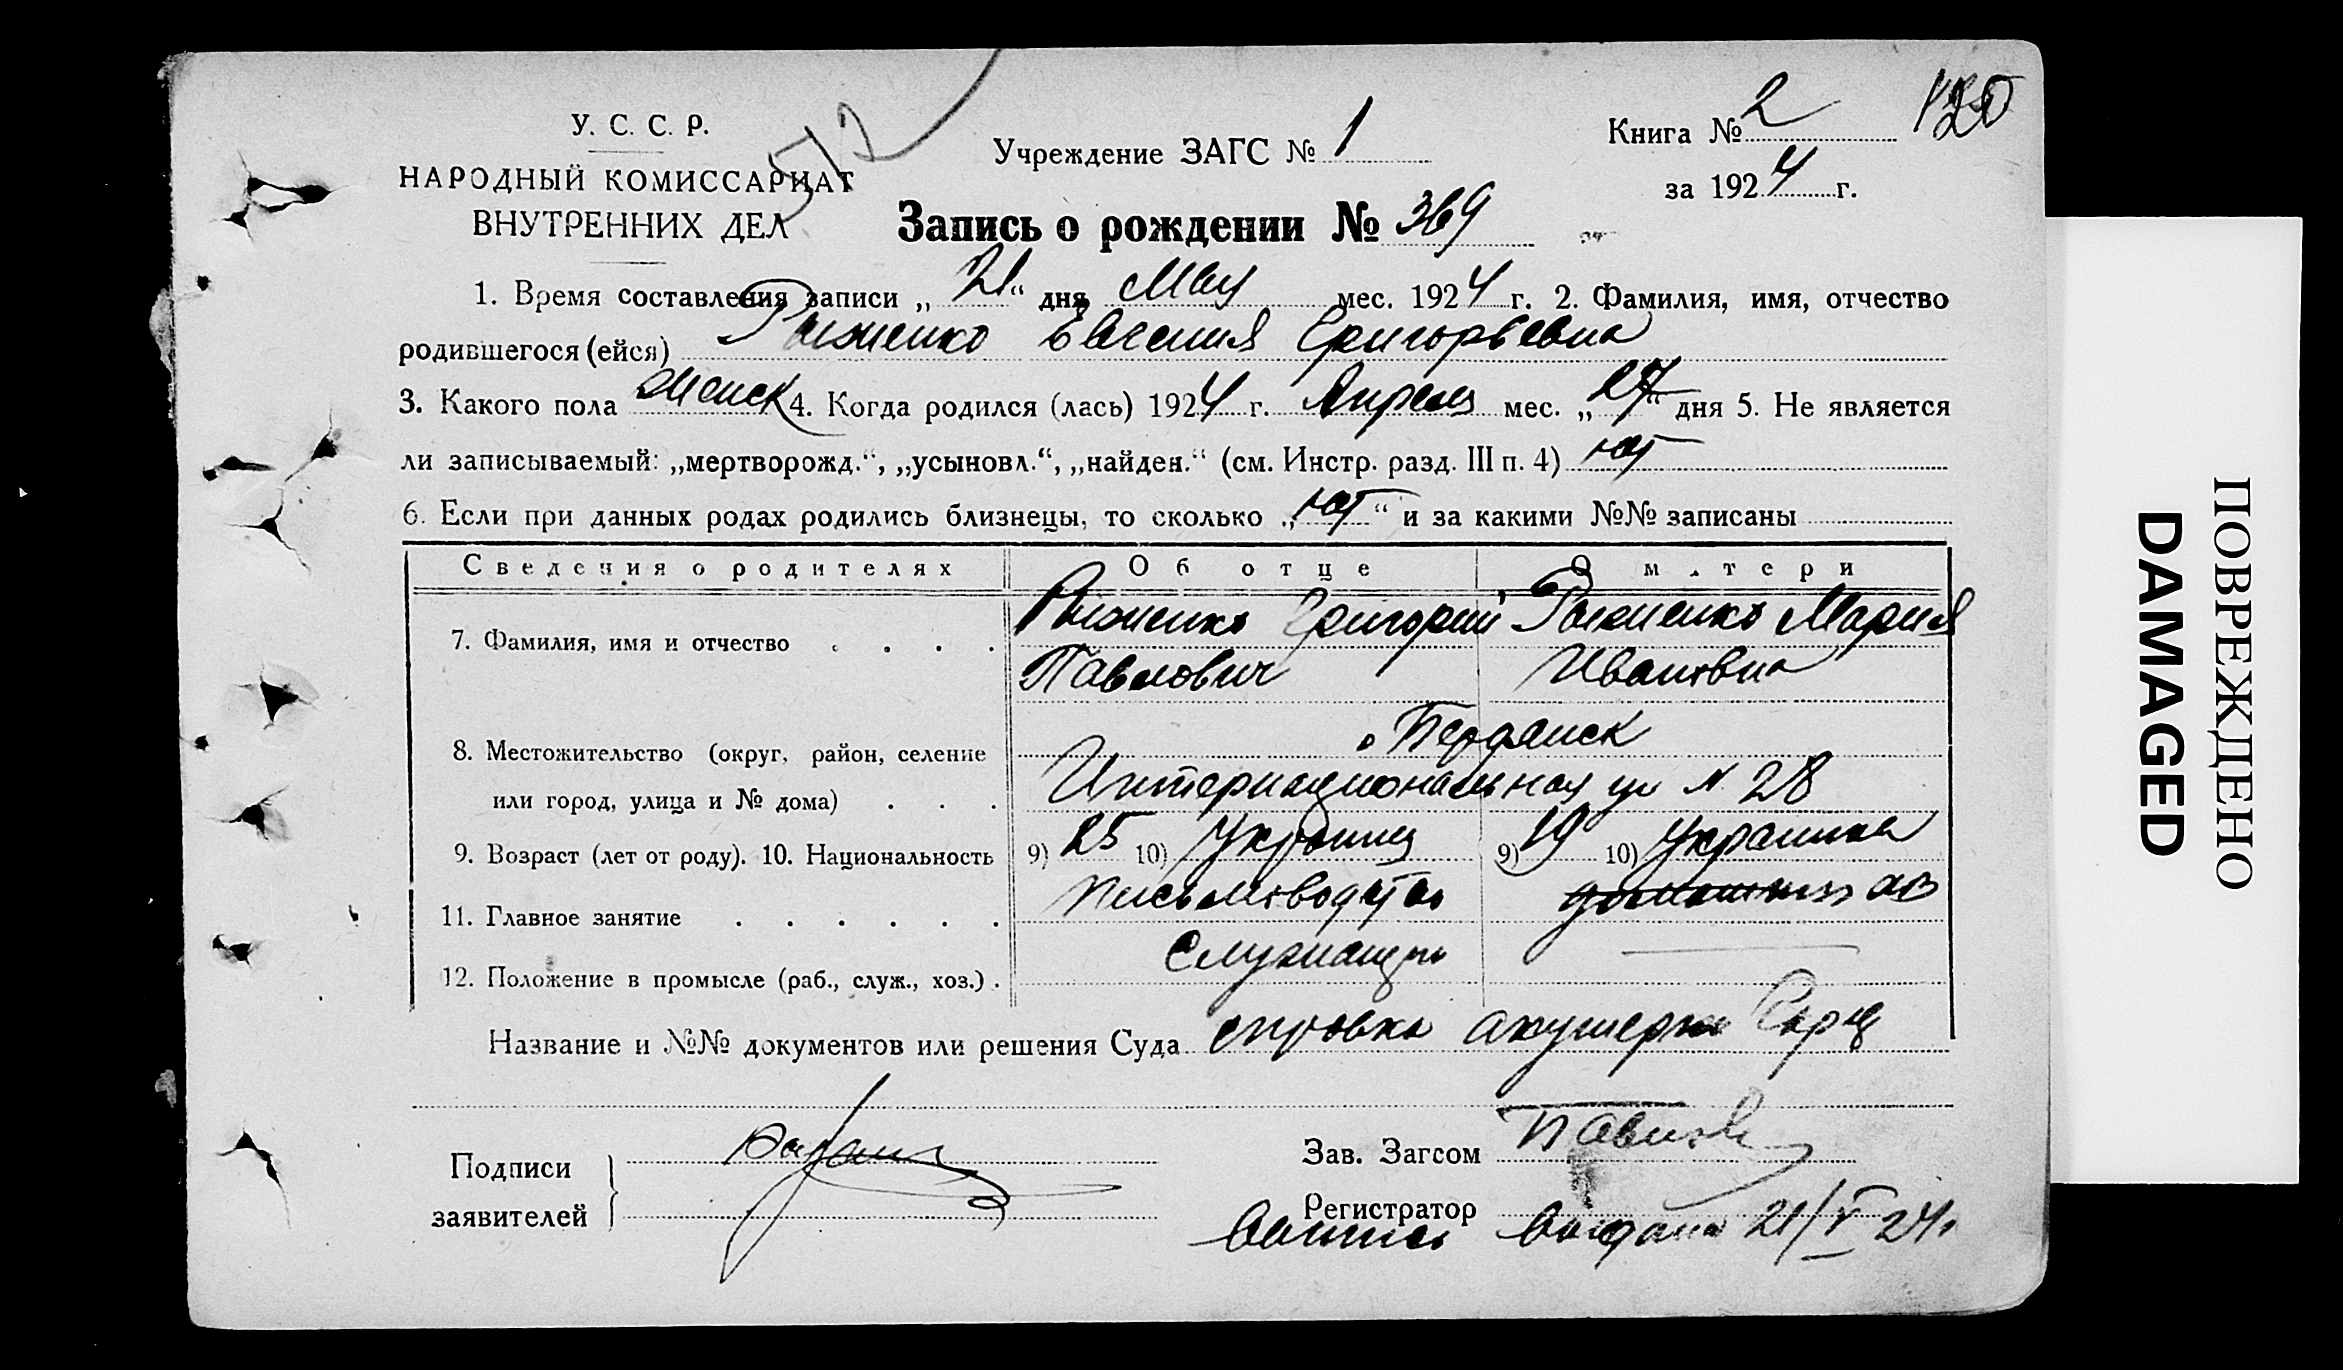 У. С. С. Р.
НАРОДНЫЙ КОМИССАРИАТ
ВНУТРЕННИХ ДЕЛ
572
Учреждение ЗАГС № 1
Книга № 2
120
за 1924 г.
Запись о рождении № 369
1. Время составления записи „21“ дня Мая мес. 1924 г. 2. Фамилия, имя, отчество
родившегося (ейся) Рыженко Евгения Григорьевна
3. Какого пола Женск 4. Когда родился (лась) 1924 г. Апреля мес. „27“ дня 5. Не является
ли записываемый: „мертворожд.“, „усыновл.“, „найден.“ (см. Инстр. разд. III п. 4) нет
6. Если при данных родах родились близнецы, то сколько „нет“ и за какими №№ записаны
Сведения о родителях Об отце О матери
7. Фамилия, имя и отчество . . . . Рыженко Григорий Рыженко Мария
Павлович Ивановна
г Бердянск
8. Местожительство (округ, район, селение
или город, улица и № дома) . . . Интернациональная ул N 28
9. Возраст (лет от роду). 10. Национальность 9) 25 10) Украинец 9) 19 10) Украинка
11. Главное занятие . . . . . . Письмоводитель домашняя
12. Положение в промысле (раб., служ., хоз.) . Служащий —
Название и №№ документов или решения Суда справка акушерки
Подписи
заявителей
Зав. Загсом
Регистратор
Выпись выдана 21/V 24г
ПОВРЕЖДЕНО
DAMAGED